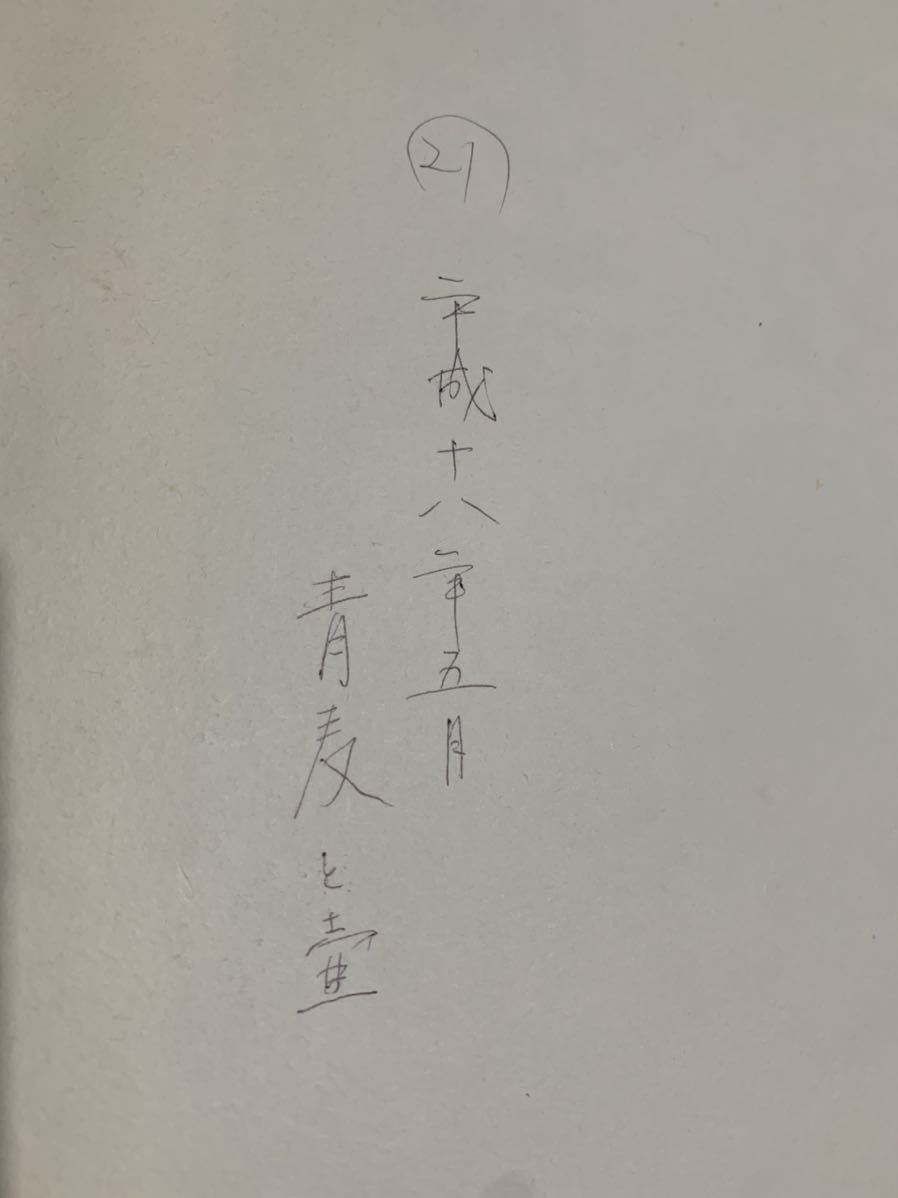 21
平成十八年五月
青麦と壷